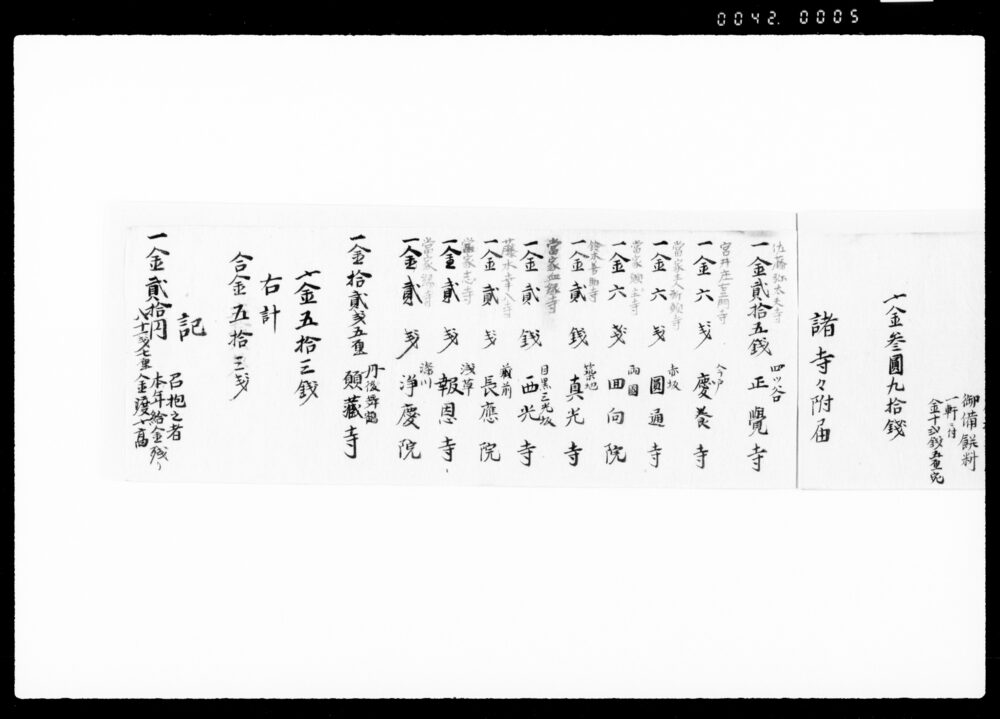 0042. 0005
御備餅料
一軒ニ付
金十弐銭五厘宛
〆金叁圓九拾銭
諸寺々附届
佐藤弥太夫寺
一金貳拾五銭 四ッ谷 正覺寺
宮井庄左衛門寺
一金六戔 今戸 慶養寺
一金六戔 赤坂 圓通寺
一金六戔 両国 回向院
鈴木善助寺
一金貳銭 築地 真光寺
當家血縁寺
一金貳銭 目黒三光坂 西光寺
一金貳戔 蔵前 長應院
當家志寺
一金貳戔 浅草 報恩寺
一金貳戔 深川 淨慶院
一金拾貳戔五厘 丹後舞鶴 願藏寺
〆金五拾三銭
右計
合金五拾三戔
記
召抱之者
本年給金残り
一金貳拾円
八十二戔七厘